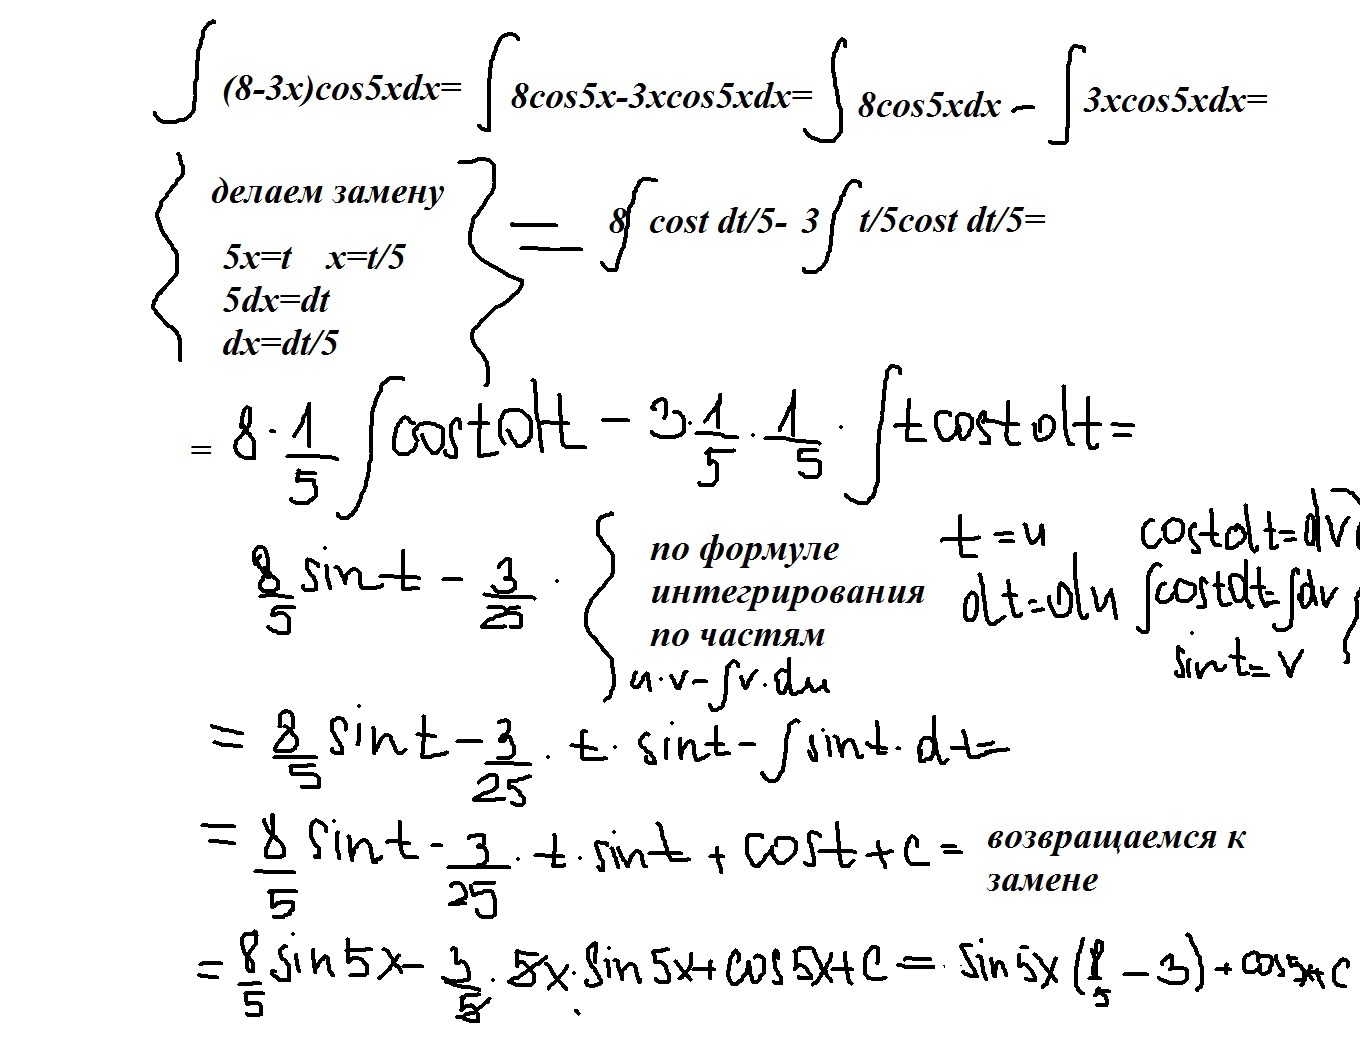 ∫ (8-3x)cos5xdx= ∫ 8cos5x-3xcos5xdx= ∫ 8cos5xdx - ∫ 3xcos5xdx=
{ делаем замену } = 8∫ cost dt/5- 3∫ t/5cost dt/5=
5x=t x=t/5
5dx=dt
dx=dt/5
= 8·1/5 ∫ cost dt - 3·1/5·1/5·∫ t cost dt =
8/5 sint - 3/25 · { по формуле интегрирования по частям
u·v-∫v·du
t=u cost dt=dv
dt=du ∫cost dt=∫dv
sint=v }
= 8/5 sint - 3/25 · t· sint - ∫ sint· dt=
= 8/5 sint - 3/25 · t· sint + cost + c = возвращаемся к замене
= 8/5 sin5x - 3/5 · 5x· sin5x + cos5x + c = sin5x (8/5 - 3) + cos5x + c